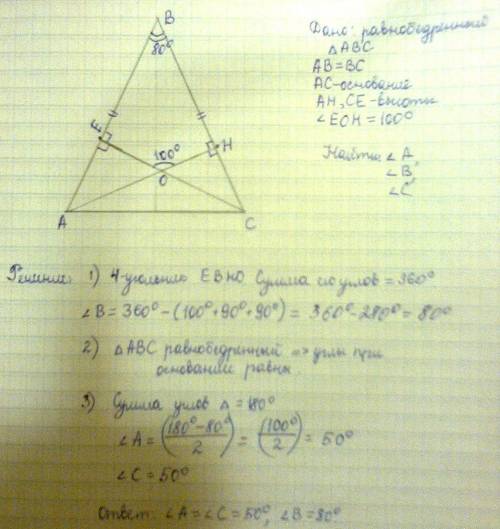 B
80°
E
H
100°
O
A
C
Дано: равнобедренный
△ABC
AB=BC
AC-основание
AH, CE-высоты
∠EOH=100°
Найти: ∠A,
∠B,
∠C
Решение: 1) 4-угольник EBHO. Сумма его углов = 360°
∠B= 360° - (100°+90°+90°) = 360° - 280° = 80°
2) △ABC равнобедренный => углы при
основании равны.
3) Сумма углов △ = 180°
∠A = (180° - 80°)/2 = (100°)/2 = 50°
∠C = 50°
Ответ: ∠A = ∠C = 50°, ∠B = 80°.